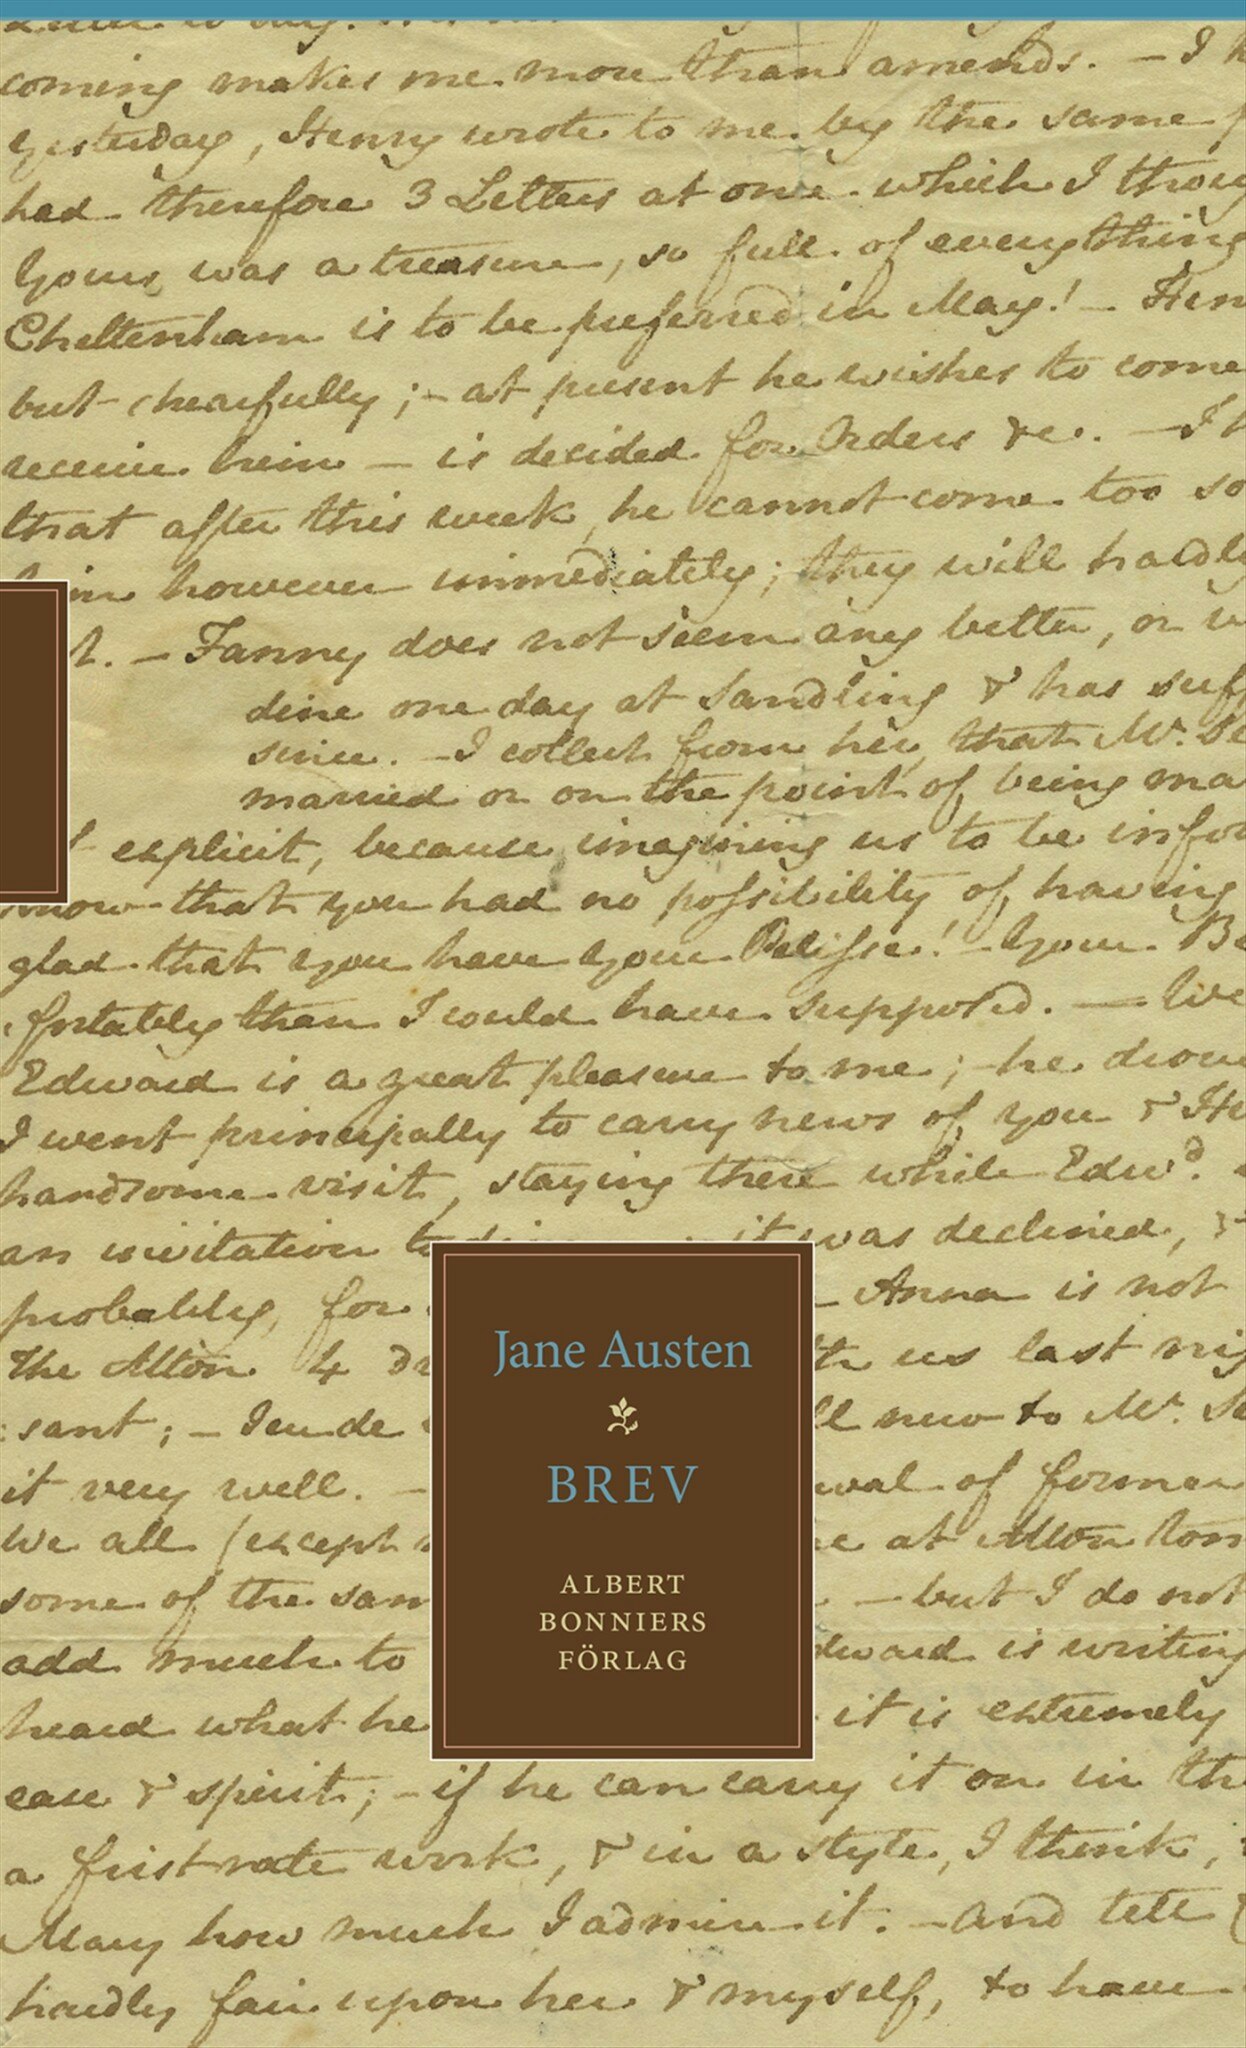 coming makes me more than amends. — I h
yesterday, Henry wrote to me by the same p
had therefore 3 Letters at once which I thoug
Yours was a treasure, so full of everything
Cheltenham is to be preferred in May! — Hen
but chearfully; — at present he wishes to come
receive him — is decided for Orders &c. — I h
that after this week, he cannot come too so
him however immediately; they will hardly
t. — Fanny does not seem any better, or w
dine one day at Sandling & has suff
since. — I collect from her, that Mr. Se
married or on the point of being ma
explicit, because imagining us to be infor
know that you had no possibility of having
glad that you have your Pelisse! — Your Be
fortably than I would have supposed. — We
Edward is a great pleasure to me; — he drove
I went principally to carry news of you & He
handsome visit, staying there while Edwd.
an invitation to din it was declined, &
probably, for — Anna is not
the Alton 4 dr th us last nig
sant; — Jeu de ll new to Mr. Se
it very well. — wal of former
We all (except e at Alton tom
some of the sam — but I do not
add much to dward is writing
heard what he it is extremely
ease & spirit; — if he can carry it on in th
a first rate work, & in a style, I think,
Mary how much I admire it. — And tell
hardly fair upon her & myself, to have
Jane Austen
BREV
ALBERT
BONNIERS
FÖRLAG